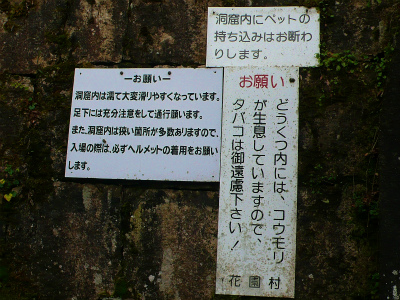 洞窟内にペットの
持ち込みはお断わ
りします。
ーお願いー
洞窟内は濡て大変滑りやすくなっています。
足下には充分注意をして通行願います。
また、洞窟内は狭い箇所が多数ありますので、
入場の際は、必ずヘルメットの着用をお願い
します。
お願い
どうくつ内には、コウモリ
が生息していますので、
タバコは御遠慮下さい!
花園村